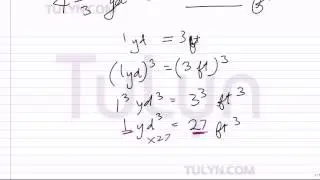 TULYN.COM
1 yd = 3 ft
(1 yd)³ = (3 ft)³
1³ yd³ = 3³ ft³
1 yd³ = 27 ft³
x27
TULYN.COM